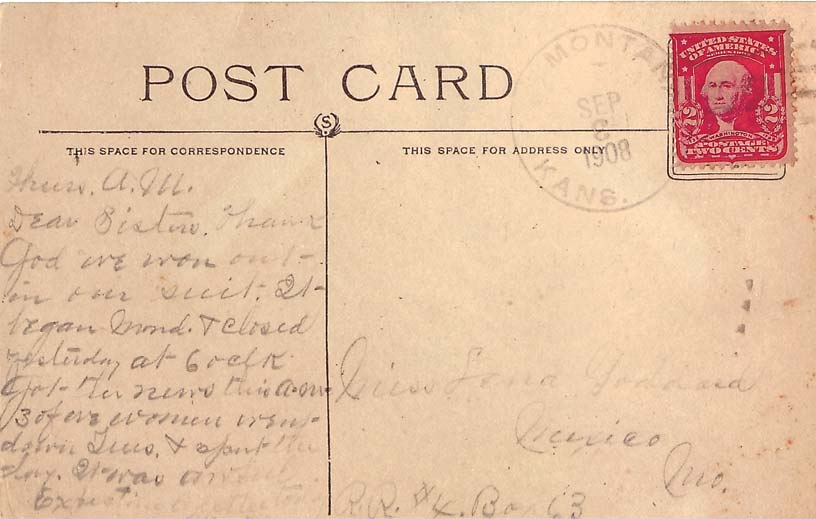 POST CARD
MONTAN
SEP
1908
KANS.
UNITED STATES
OF AMERICA
2 WASHINGTON 2
POSTAGE
TWO CENTS
S
THIS SPACE FOR CORRESPONDENCE
THIS SPACE FOR ADDRESS ONLY
Thurs. A.M.
Dear Sisters. Thank
God we won out
in our suit. It
began Mond. & closed
yesterday at 6 oclk
Got the news this a.m.
3 of we women went
down Tues. & spent the
day. It was awful
Miss Lena Goddard
Mexico
Mo.
R.R. #4. Box 63